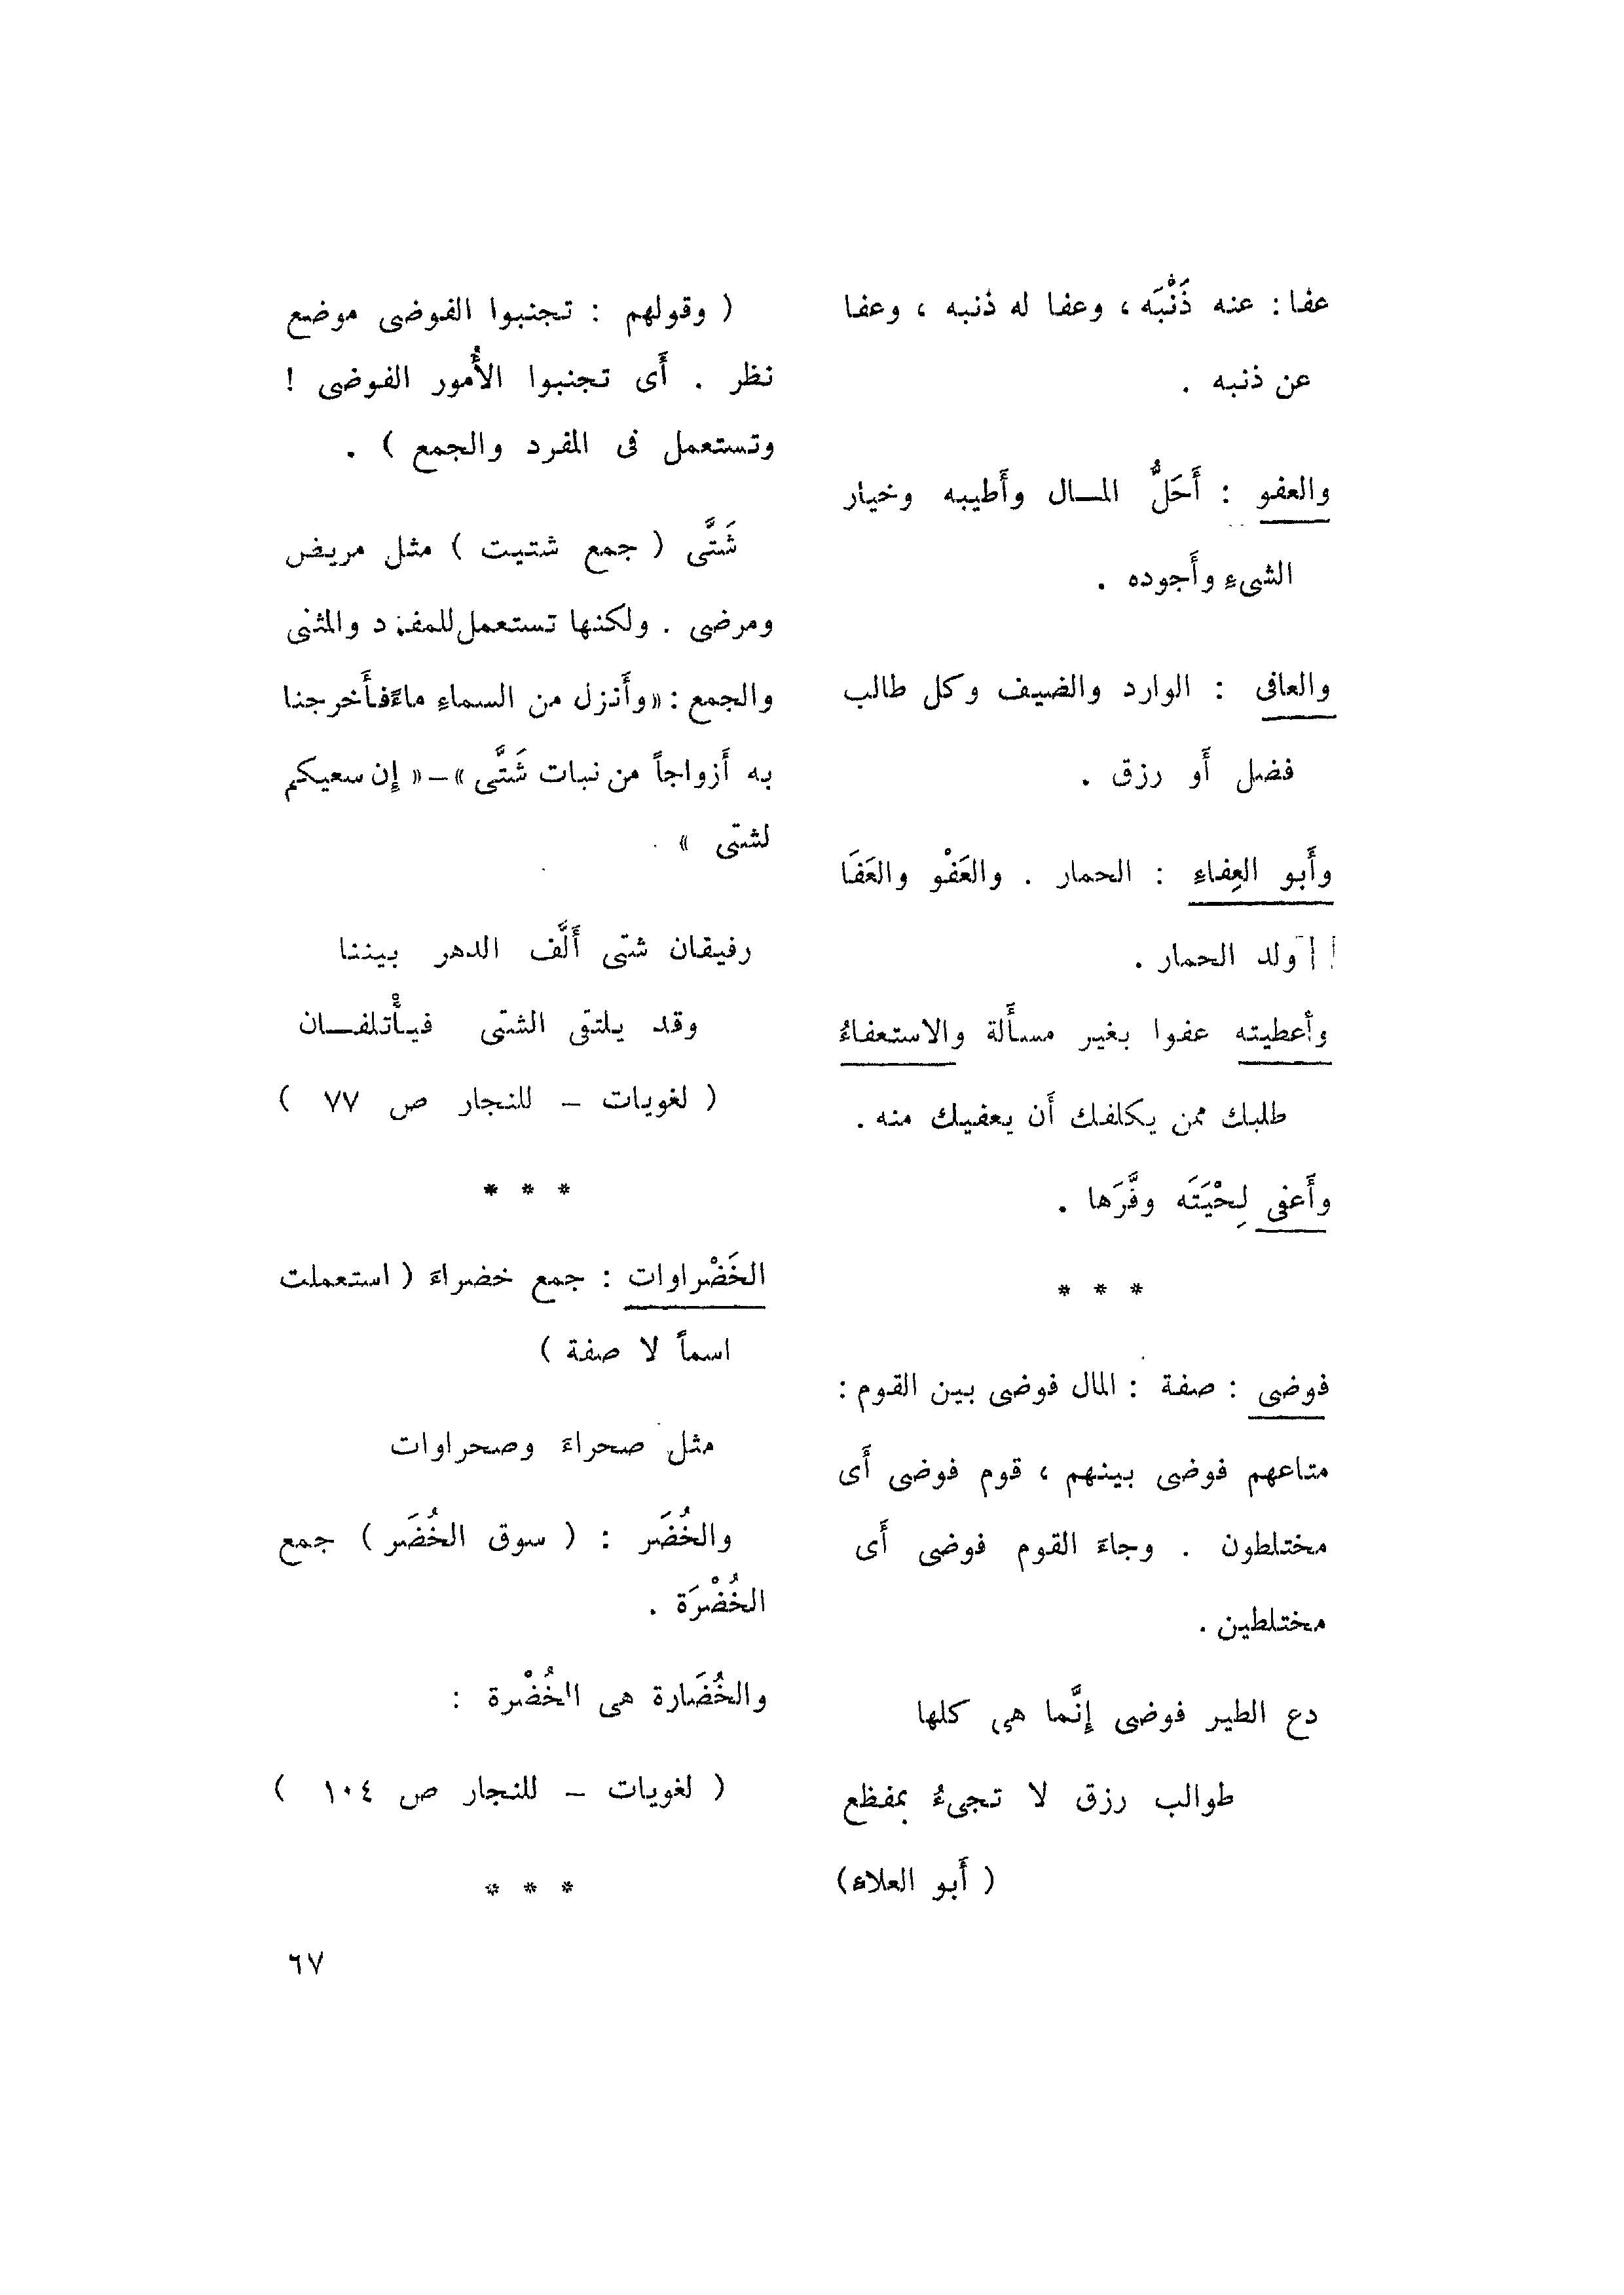 عفا : عنه ذَنْبَه ، وعفا له ذنبه ، وعفا
عن ذنبه .
والعفو : أَحَلُّ المـال وأَطيبه وخيار
الشىءِ وأَجوده .
والعافى : الوارد والضيف وكل طالب
فضل أَو رزق .
وأَبو العِفاءِ : الحمار . والعَفْو والعَفَا
ولد الحمار .
وأعطيته عفوا بغير مسأَلة والاستعفاءُ
طلبك ممن يكلفك أَن يعفيك منه .
وأَعفى لِحْيَتَه وفَّرَها .
* * *
فوضى : صفة : المال فوضى بين القوم :
متاعهم فوضى بينهم ، قوم فوضى أَى
مختلطون . وجاءَ القوم فوضى أَى
مختلطين .
دع الطير فوضى إِنَّما هى كلها
طوالب رزق لا تجىءُ بمفظع
( أَبو العلاء )
( وقولهم : تجنبوا الفوضى موضع
نظر . أَى تجنبوا الأُمور الفوضى !
وتستعمل فى المفرد والجمع ) .
شَتَّى ( جمع شتيت ) مثل مريض
ومرضى . ولكنها تستعمل للمفرد والمثنى
والجمع : « وأَنزل من السماءِ ماءً فأَخرجنا
به أَزواجاً من نبات شَتَّى » – « إِن سعيكم
لشتى » .
رفيقان شتى أَلَّف الدهر بيننا
وقد يلتقى الشتى فيأْتلفـان
( لغويات – للنجار ص ٧٧ )
* * *
الخَضْراوات : جمع خضراءَ ( استعملت
اسماً لا صفة )
مثل صحراءَ وصحراوات
والخُضَر : ( سوق الخُضَر ) جمع
الخُضْرَة .
والخُضَارة هى الخُضْرة :
( لغويات – للنجار ص ١٠٤ )
* * *
٦٧